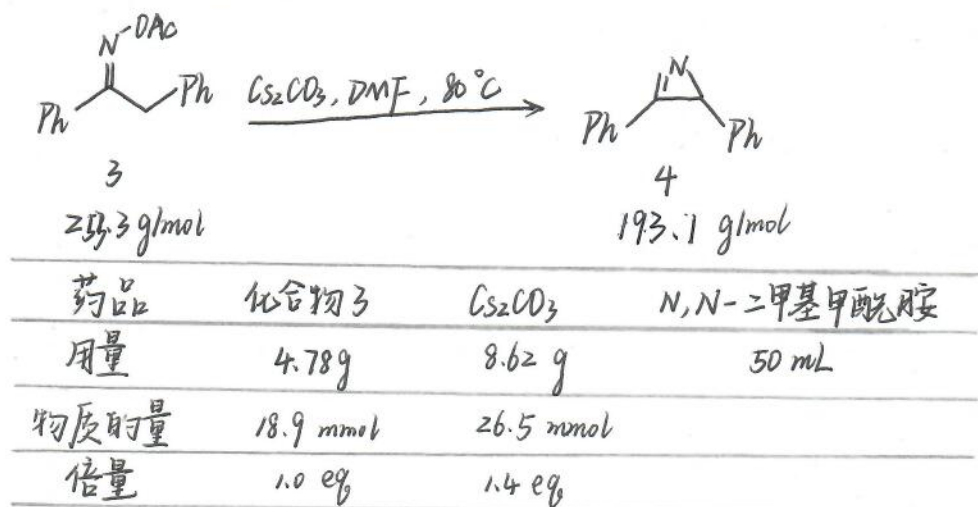 N-OAc
Ph Ph Cs2CO3, DMF, 80°C N
Ph Ph
3 4
253.3 g/mol 193.1 g/mol
药品 化合物3 Cs2CO3 N,N-二甲基甲酰胺
用量 4.78g 8.62 g 50 mL
物质的量 18.9 mmol 26.5 mmol
倍量 1.0 eq 1.4 eq